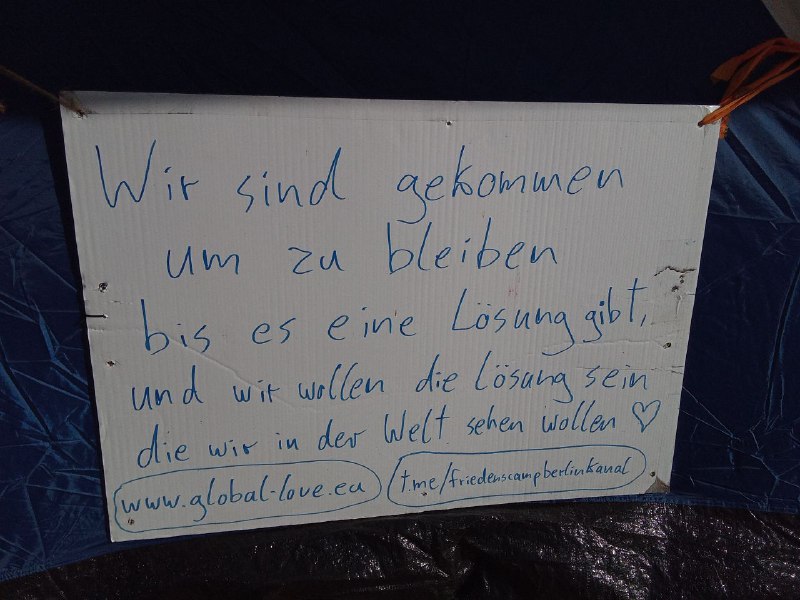 Wir sind gekommen
um zu bleiben
bis es eine Lösung gibt,
und wir wollen die Lösung sein
die wir in der Welt sehen wollen ♡
www.global-love.eu
t.me/friedenscampberlinkanal